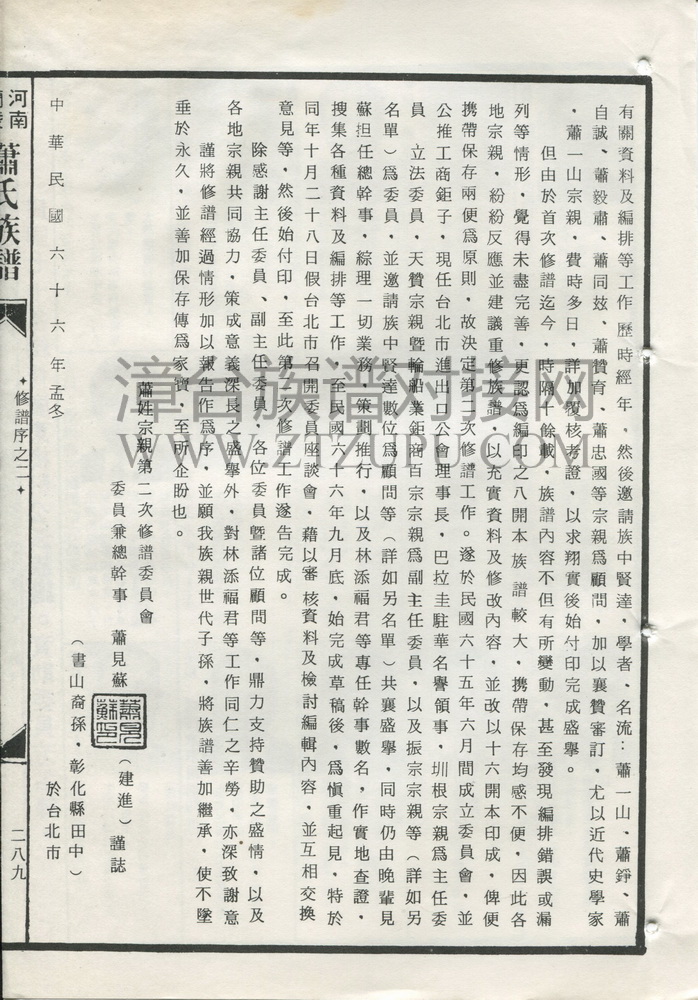 有關資料及編排等工作歷時經年，然後邀請族中賢達，學者、名流：蕭一山、蕭錚、蕭
自誠、蕭毅肅、蕭同兹、蕭贊育、蕭忠國等宗親爲顧問，加以襄贊審訂，尤以近代史學家
，蕭一山宗親，費時多日，詳加覆核考證，以求翔實後始付印完成盛舉。
但由於首次修譜迄今，時隔十餘載，族譜內容不但有所變動，甚至發現編排錯誤或漏
列等情形，覺得未盡完善，更認爲編印之八開本族譜較大，携帶保存均感不便，因此各
地宗親，紛紛反應並建議重修族譜，以充實資料及修改內容，並改以十六開本印成，俾便
携帶保存兩便爲原則，故決定第二次修譜工作。遂於民國六十五年六月間成立委員會，並
公推工商鉅子，現任台北市進出口公會理事長，巴拉圭駐華名譽領事，圳根宗親爲主任委
員　立法委員，天贊宗親暨輪船業鉅商百宗宗親爲副主任委員，以及振宗宗親等（詳如另
名單）爲委員，並邀請族中賢達數位爲顧問等（詳如另名單）共襄盛舉，同時仍由晚輩見
蘇担任總幹事，綜理一切業務，策劃推行，以及林添福君等專任幹事數名，作實地查證，
搜集各種資料及編排等工作，至民國六十六年九月底，始完成草稿後，爲愼重起見，特於
同年十月二十八日假台北市召開委員座談會，藉以審核資料及檢討編輯內容，並互相交換
意見等，然後始付印，至此第二次修譜工作遂告完成。
除感謝主任委員、副主任委員，各位委員暨諸位顧問等，鼎力支持贊助之盛情，以及
各地宗親共同協力，策成意義深長之盛舉外，對林添福君等工作同仁之辛勞，亦深致謝意
謹將修譜經過情形加以報告作爲序，並願我族親世代子孫，將族譜善加繼承，使不墜
垂於永久，並善加保存傳爲家寶，至所企盼也。
蕭姓宗親第二次修譜委員會
委員兼總幹事　蕭見蘇（建進）謹誌
蕭見蘇印
（書山裔孫，彰化縣田中）
於台北市
中華民國六十六年孟冬
河南蘭陵
蕭氏族譜
修譜序之二
二八九
漳台族谱对接网
WWW.ZTZUPU.COM